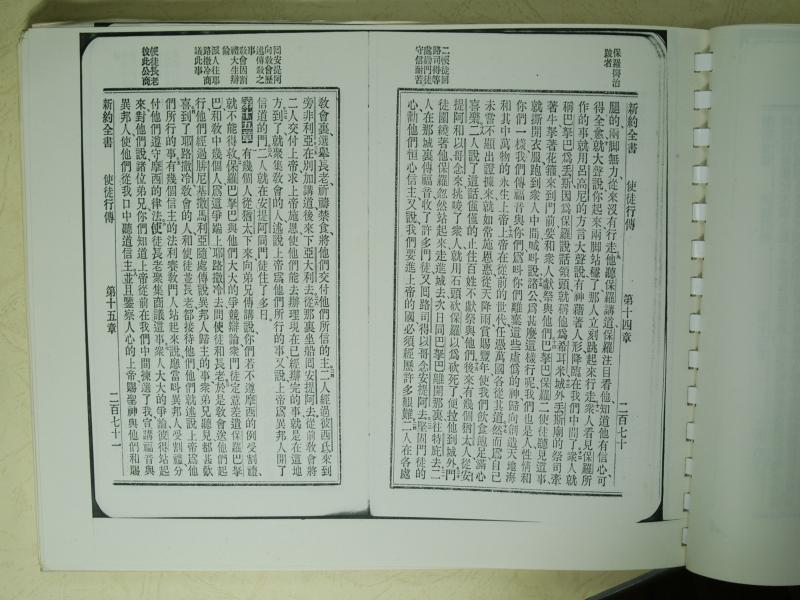 保羅醫治
跛者
二使徒回
路司得等
處勸門徒
守信耐苦
新約全書 使徒行傳 第十四章 二百七十
腿的、兩脚無力、從來沒有行走、他聽保羅講道、保羅注目看他、知道他有信心、可
得全愈、就大聲說、你起來兩脚站穩了、那人立刻跳起來行走、衆人看見保羅所
作的事、就用呂高尼的方言大聲說、有神藉著人形降臨在我們中間了、衆人就
稱巴拏巴爲丟斯、因爲保羅說話領頭、就稱他爲希耳米、城外丟斯廟的祭司、牽
著牛拏著花箍、來到門前、要和衆人獻祭與他們、巴拏巴保羅二使徒聽見這事、
就撕開衣服、跑到衆人中間、喊叫說、諸公爲甚麽這樣行呢、我們也是人、性情和
你們一樣、我們傳福音與你們、爲叫你們離棄這些虛僞的神、歸向創造天地海
和其中萬物的永生上帝、上帝在從前的世代、任憑萬國各從其道、然而爲自己
未嘗不顯出證據來、就如常施恩惠、從天降雨、賞賜豐年、使我們飲食飽足、滿心
喜樂、二人說了這話、僅僅的止住百姓不獻祭與他們、後來有幾個猶太人從安
提阿和以哥念來、挑唆了衆人、就用石頭砍保羅、以爲砍死了、便拉他到城外、門
徒圍繞著他、保羅忽然站起來、走進城去、次日同巴拏巴離開那裏往特庇去、二
人在那城裏傳福音、收了許多門徒、又回路司得以哥念安提阿去、堅固門徒的
心、勸他們恒心信主、又說我們要進上帝的國、必須經歷許多艱難、二人在各處
回安提阿
向敎會歷
述傳敎之
事
敎會因割
禮大生辯
論
派人往耶
路撒冷商
議此事
使徒長老
彼此公商
敎會裏選舉長老、祈禱禁食、將他們交付他們所信的主、二人經過彼西氏、來到
旁非利亞、在別加講道後、來下亞大利去、從那裏坐船回安提阿去、從前敎會將
二人交付上帝、求上帝施恩、使他們能去辦理、現在已經辦完的事、就是在這地
方、到了就聚集敎會的人、述說上帝爲他們所行的事、又說上帝爲異邦人開了
信道的門、二人就在安提阿同門徒住了多日、
第十五章 有幾個人、從猶太下來、向弟兄傳講說、你們若不遵摩西的例受割禮、
就不能得救、保羅巴拏巴與他們大大的爭競辯論、衆門徒定意差遣保羅巴拏
巴和敎中幾個人、爲這爭端上耶路撒冷去、問使徒和長老、於是敎會送他們起
行、他們經過腓尼基撒馬利亞、隨處傳說異邦人歸主的事、衆弟兄聽見都甚歡
喜、到了耶路撒冷、敎會的人和使徒並長老都接待他們、他們就述說上帝爲他
們所行的事、有幾個信主的法利賽敎門人、站起來說、應當叫異邦人受割禮、分
付他們遵守摩西的律法、使徒長老聚集商議這事、衆人大大的爭論、彼得站起
來、對他們說、諸位弟兄、你們知道上帝從前在我們中間揀選了我、宣講福音與
異邦人、使他們從我口中聽道信主、並且鑒察人心的上帝、賜聖神與他們、和賜
新約全書 使徒行傳 第十五章 二百七十一